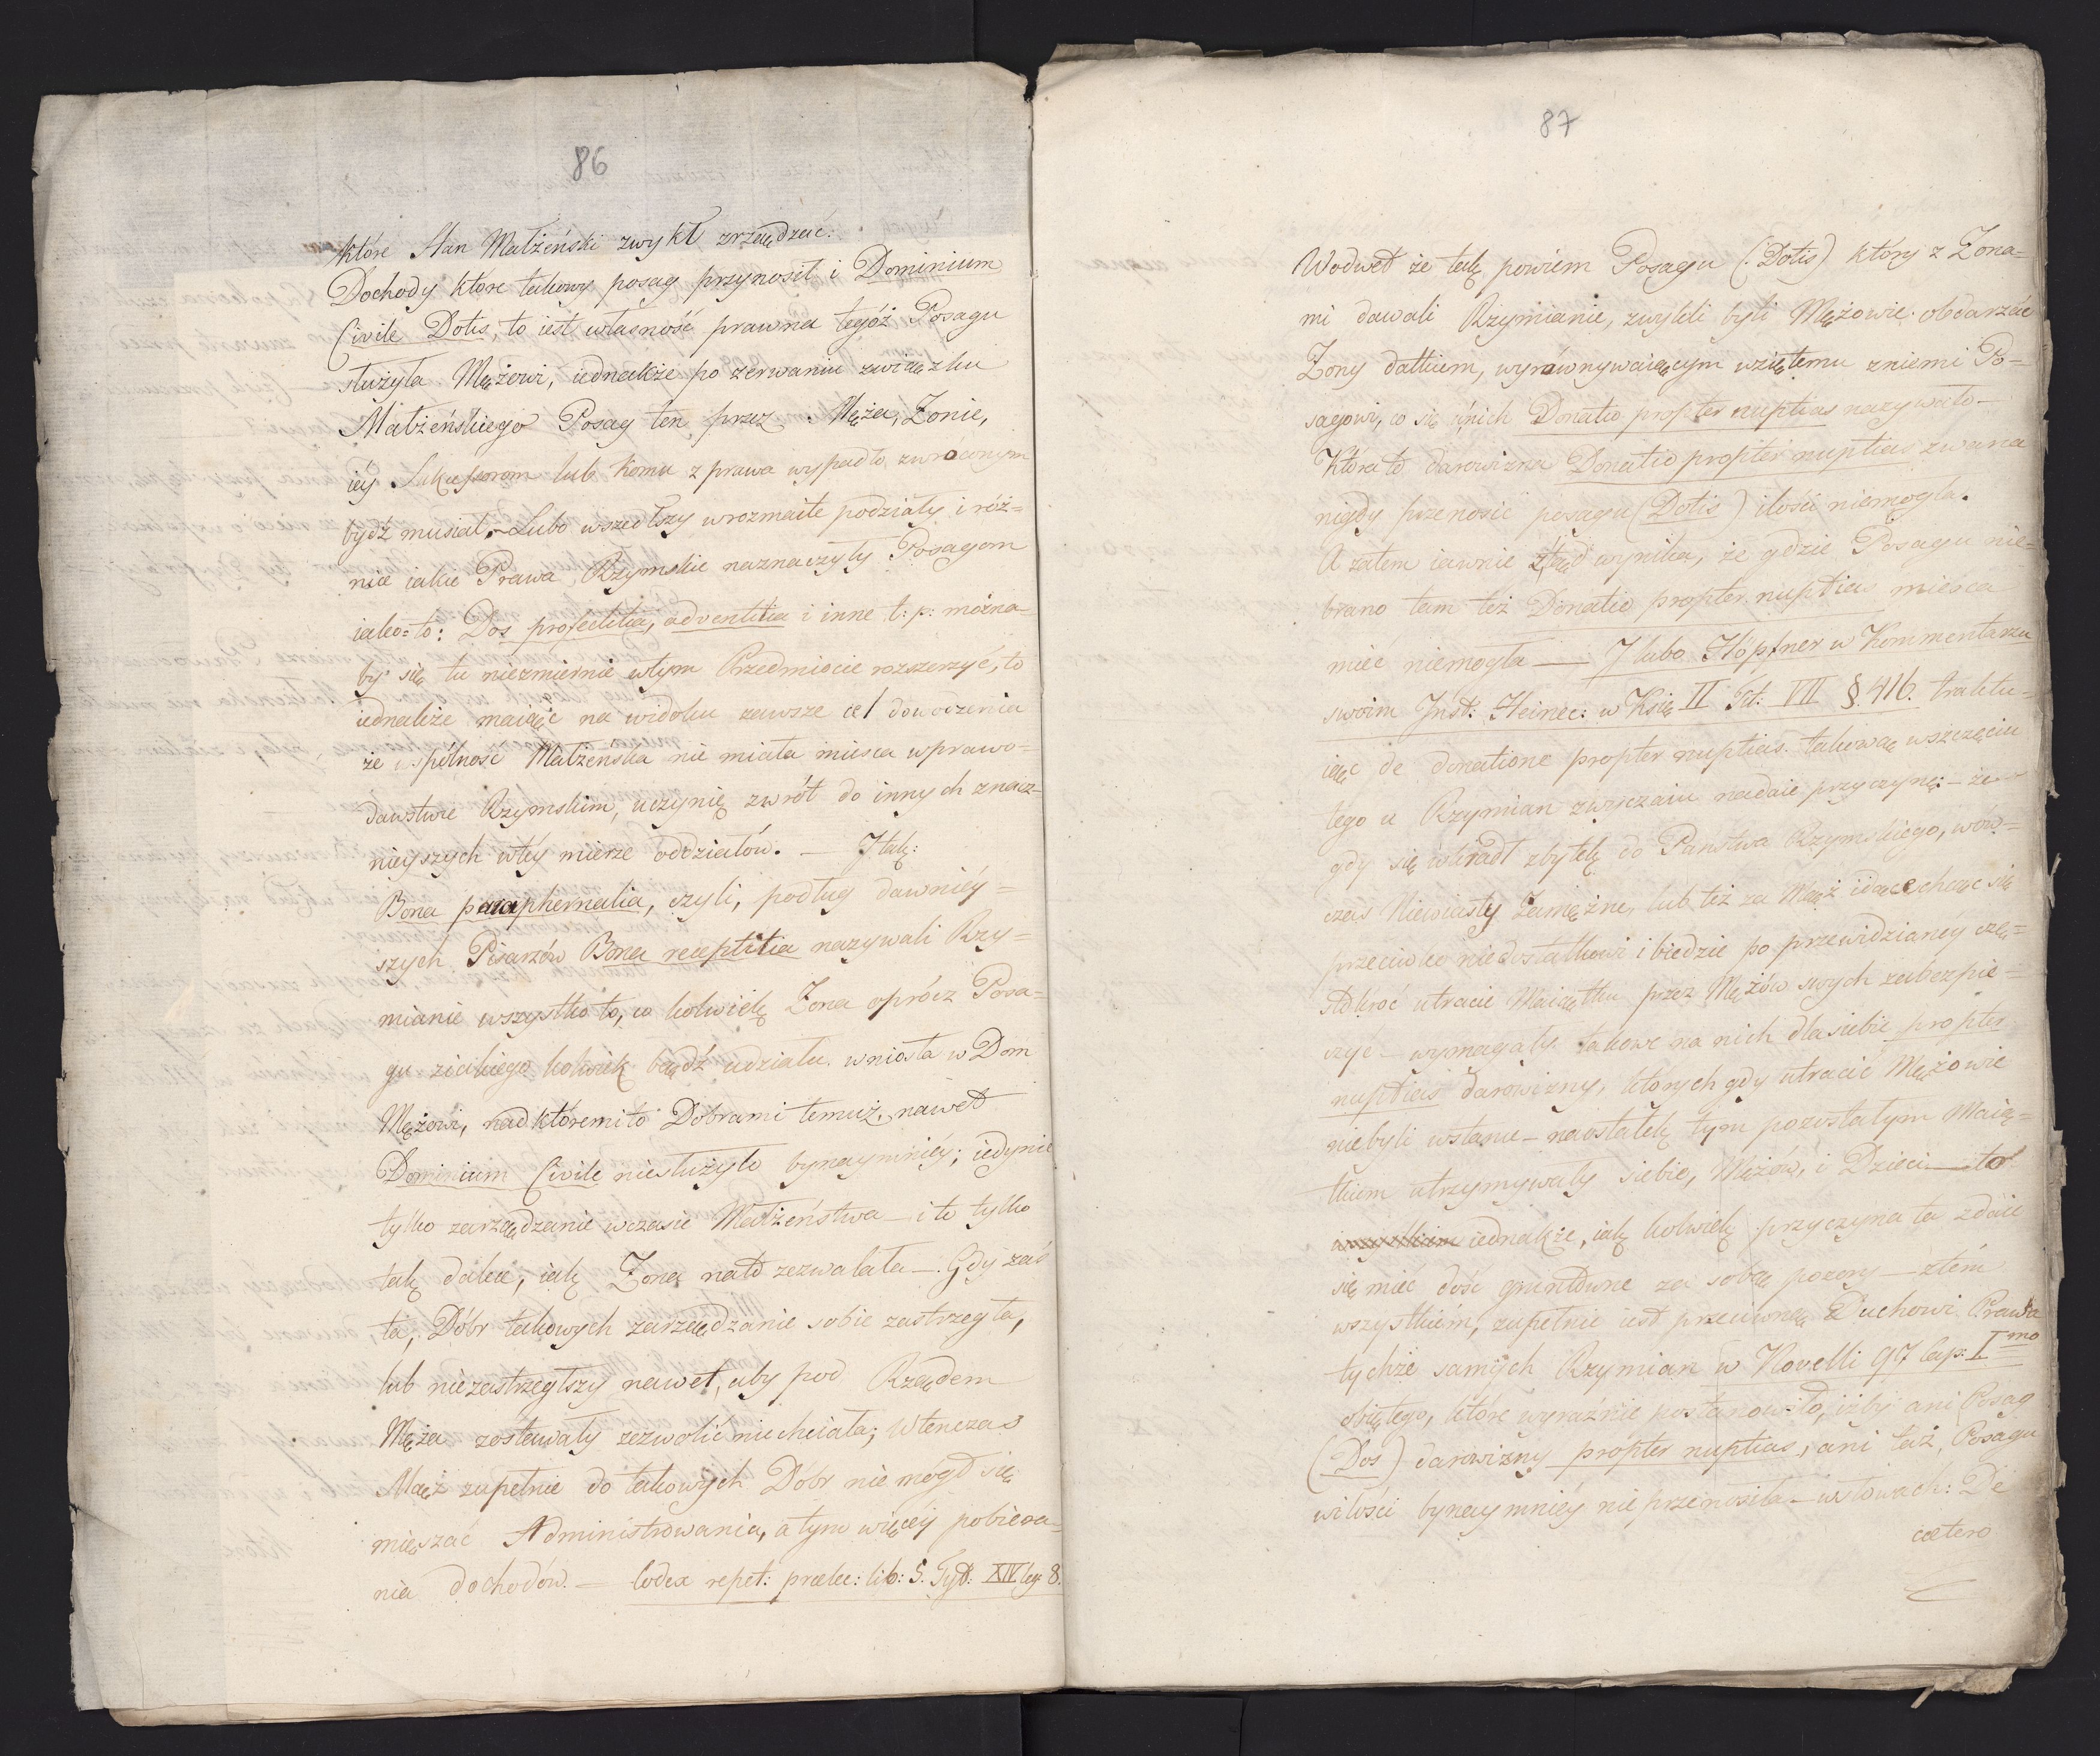 86
które Stan Małżeński zwykł zrządzać.
Dochody które takowy posag przynosił i Dominium
Civile Dotis, to iest własność prawna tegóż Posagu
służyła Mężowi, iednakże po zerwaniu związku
Małżeńskiego Posag ten przez Męża, Zonie,
iéy Sukcessorom lub komu z prawa wypadło, zwróconym
bydź musiał. Lubo wszedłszy wrozmaite podziały i róż=
nice iakie Prawa Rzymskie naznaczyły Posagom
iako=to: Dos profectitia, adventitia i inne t: p: można
by się tu niezmiernie wtym Przedmiocie rozszerzyć, to
iednakże maiąc na widoku zawsze cel dowodzenia
że wspólność Małżeńska nie miała mieysca wprawo=
dawstwie Rzymskim, uczynię zwrót do innych znacz=
nieyszych wtéy mierze oddziałów. — I tak:
Bona paraphernalia, czyli, podług dawniéy=
szych Pisarzów Bona receptitia nazywali Rzy=
mianie wszystko to, co kolwiek Zona oprócz Posa=
gu ziakiego kolwiek bądź udziału wniosła w Dom
Mężowi, nad któremi to Dobrami temuż, nawet
Dominium Civile niesłużyło bynaymniéy; iedynie
tylko zarządzanie wczasie Małżeństwa — i to tylko
tak dalece, iak Zona nato zezwalała —. Gdy zaś
ta, Dóbr takowych zarządzanie sobie zastrzegła,
lub niezastrzegłszy nawet, aby pod Rządem
Męża zostawały zezwolić niechciała; Wtenczas
Mąż zupełnie do takowych Dóbr nie mógł się
mięszać Administrowania, a tym więcéy pobiera=
nia dochodów. = Codex repet: prælec: lib: 5. Tyt: XIV leg: 8.
87
Wodwet że tak powiem Posagu (: Dotis) który z Zona=
mi dawali Rzymianie, zwykli byli Mężowie obdarzać
Zony datkiem, wyrównywaiącym wziętemu zniemi Po=
sagowi, co się unich Donatio propter nuptias nazywało —
Która to darowizna Donatio propter nuptias zwana
nigdy przenosić posagu (Dotis) ilości niemogła.
A zatem iawnie ztąd wynika, że gdzie Posagu nie=
brano tam też Donatio propter nuptias mieysca
mieć niemogła — I lubo Höpfner w Kommentarzu
swoim Jnst: Heinec: w Księ II Tit: VII §. 416. traktu=
iąc de donatione propter nuptias takową wszczęciu
tego u Rzymian zwyczaiu nadaie przyczynę: — że
gdy się wkradł zbytek do Państwa Rzymskiego, wów=
czas Niewiasty Zamężne, lub też za Mąż idące chcąc się
przeciwko niedostatkowi i biedzie po przewidzianey czę=
stokroć utracie Maiątku przez Mężów swych zabezpie=
czyć — wymagały takowe na nich dla siebie propter
nuptias darowizny, których gdy utracić Mężowie
niebyli wstanie — naostatek tym pozostałym Maią=
tkiem utrzymywały siebie, Mężów, i Dzieci — to
iednakże, iak kolwiek przyczyna ta zdaie
się mieć dość gruntowne za sobą pozory — ztém
wszystkiém, zupełnie iest przeciwną Duchowi Prawa
tychże samych Rzymian w Novelli 97 Cap: I mo
obiętego, które wyraźnie postanowiło, iżby ani Posag
(Dos) darowizny propter nuptias, ani taż, Posagu
wilości bynaymniéy nieprzenosiła — wsłowach: De
cætero